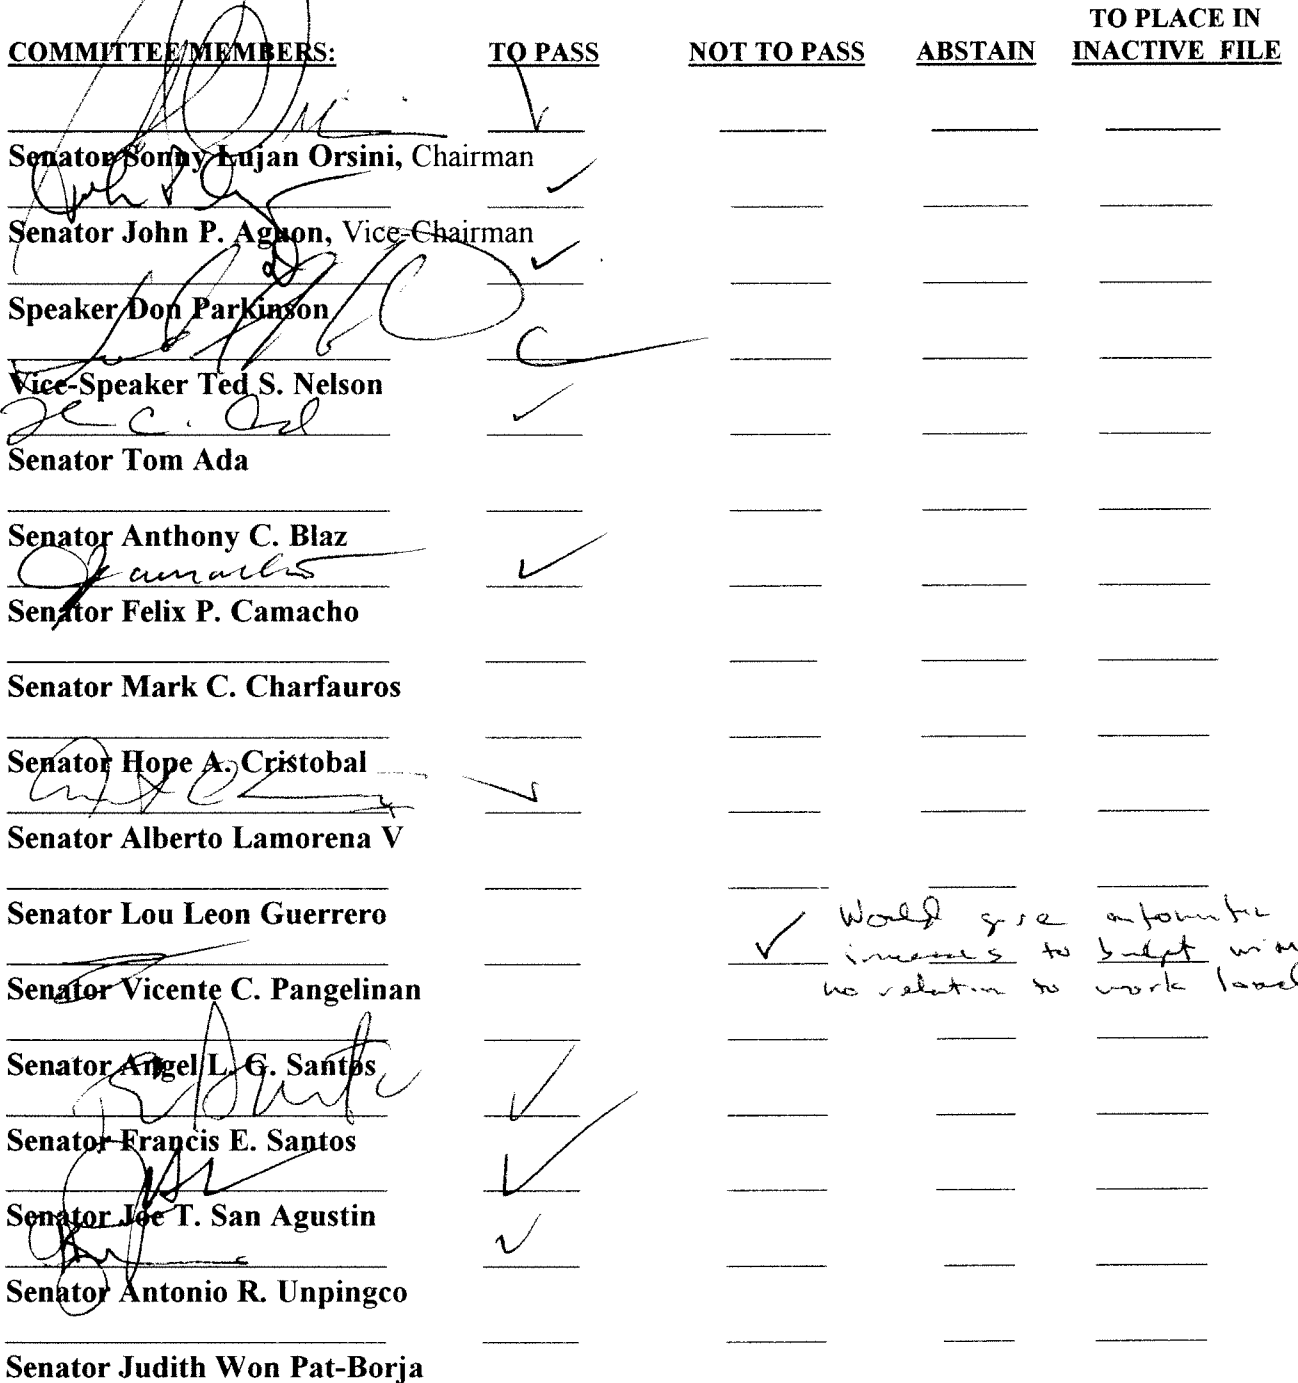 TO PLACE IN
COMMITTEE MEMBERS: TO PASS NOT TO PASS ABSTAIN INACTIVE FILE
Senator Sonny Lujan Orsini, Chairman
Senator John P. Aguon, Vice-Chairman
Speaker Don Parkinson
Vice-Speaker Ted S. Nelson
Senator Tom Ada
Senator Anthony C. Blaz
Senator Felix P. Camacho
Senator Mark C. Charfauros
Senator Hope A. Cristobal
Senator Alberto Lamorena V
Senator Lou Leon Guerrero
Would give automatic
increases to budget with
Senator Vicente C. Pangelinan
no relation to work load
Senator Angel L. G. Santos
Senator Francis E. Santos
Senator Joe T. San Agustin
Senator Antonio R. Unpingco
Senator Judith Won Pat-Borja